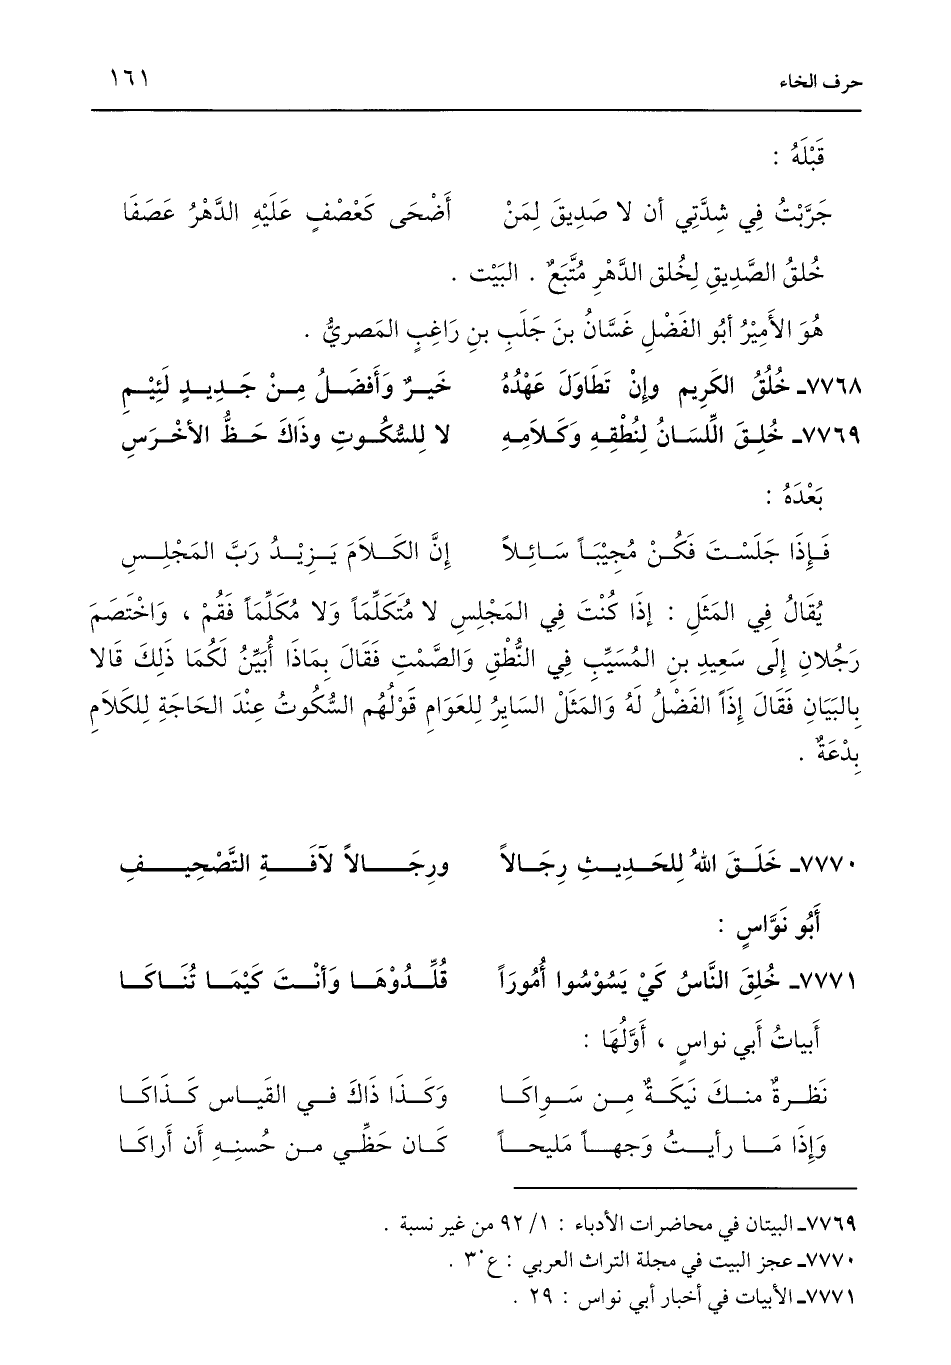 حرف الخاء ١٦١
قَبْلَهُ :
جَرَّبْتُ فِي شِدَّتِي أن لا صَدِيقَ لِمَنْ أَضْحَى كَعَصْفٍ عَلَيْهِ الدَّهْرُ عَصَفَا
خُلقُ الصَّدِيقِ لِخُلق الدَّهْرِ مُتَّبَعٌ . البَيْت .
هُوَ الأَمِيْرُ أبُو الفَضْلِ غَسَّانُ بنَ جَلَبِ بنِ رَاغِبٍ المَصريُّ .
٧٧٦٨ـ خُلُقُ الكَرِيم وإنْ تَطَاوَلَ عَهْدُهُ خَيـرٌ وَأَفضَـلُ مِـنْ جَـدِيـدٍ لَئِيْـمِ
٧٧٦٩ـ خُلِـقَ اللِّسَـانُ لِنُطْقِـهِ وَكَـلاَمِـهِ لا لِلسُّكُـوتِ وذَاكَ حَـظُّ الأَخْـرَسِ
بَعْدَهُ :
فَـإِذَا جَلَسْـتَ فَكُـنْ مُجِيْبَـاً سَـائِـلاً إنَّ الكَـلاَمَ يَـزِيْـدُ رَبَّ المَجْلِـسِ
يُقَالُ فِي المَثَلِ : إذَا كُنْتَ فِي المَجْلِسِ لا مُتَكَلِّمَاً وَلا مُكَلِّمَاً فَقُمْ ، وَاخْتَصَمَ
رَجُلانِ إلَى سَعِيدِ بنِ المُسَيِّبِ فِي النُّطْقِ وَالصَّمْتِ فَقَالَ بِمَاذَا أُبَيِّنُ لَكُمَا ذَلِكَ قَالا
بِالبَيَانِ فَقَالَ إذَاً الفَضْلُ لَهُ وَالمَثَلْ السَايِرُ لِلعَوَامِ قَوْلُهُم السُّكُوتُ عِنْدَ الحَاجَةِ لِلكَلاَمِ
بِدْعَةٌ .
٧٧٧٠ـ خَلَـقَ اللهُ لِلحَـدِيـثِ رِجَـالاً ورِجَـالاً لآفَـةِ التَّصْحِيـفِ
أَبُو نَوَّاسٍ :
٧٧٧١ـ خُلِقَ النَّاسُ كَيْ يَسُوْسُوا أُمُورَاً قُلِّـدُوْهَـا وَأنْـتَ كَيْمَـا تُنَـاكَـا
أَبياتُ أَبي نواسٍ ، أَوَّلُهَا :
نَظـرةٌ منـكَ نَيكَـةٌ مِـن سَـواكَـا وَكَـذَا ذَاكَ فـي القَيـاس كَـذَاكَـا
وَإِذَا مَـا رأيـتُ وَجهـاً مَليحـاً كَـان حَظِّـي مـن حُسنِـهِ أن أراكَـا
٧٧٦٩ـ البيتان في محاضرات الأدباء : ١/ ٩٢ من غير نسبة .
٧٧٧٠ـ عجز البيت في مجلة التراث العربي : ع ٣٠ .
٧٧٧١ـ الأبيات في أخبار أبي نواس : ٢٩ .